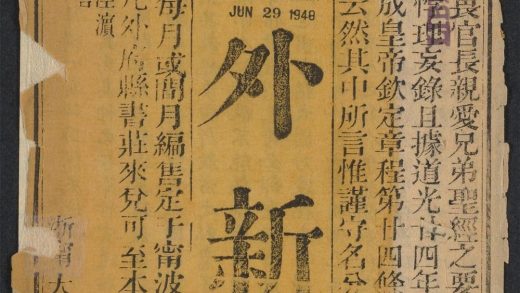 畏官長親愛兄弟聖經之要
理妄錄且據道光廿四年
成皇帝欽定章程第廿四條
云然其中所言惟謹守名
JUN 29 1948
外新
每月或間月編售定于甯波
凡外府縣書莊來兌可至本
濱
浙甯大